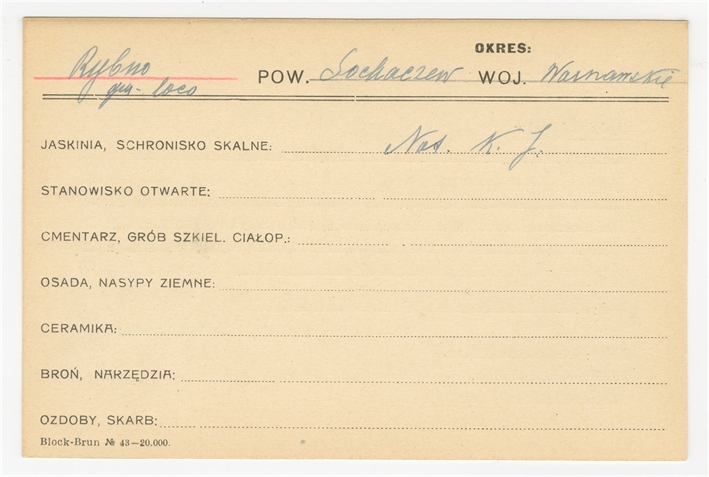 OKRES:
Rybno POW. Sochaczew WOJ. Warszawskie
gm. loco
JASKINIA, SCHRONISKO SKALNE: Not. K. J.
STANOWISKO OTWARTE:
CMENTARZ, GRÓB SZKIEL. CIAŁOP.:
OSADA, NASYPY ZIEMNE:
CERAMIKA:
BROŃ, NARZĘDZIA:
OZDOBY, SKARB:
Block-Brun № 43—20.000.